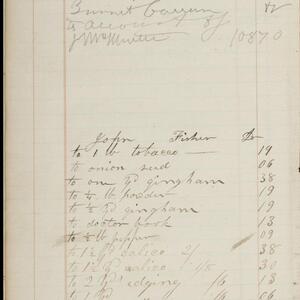 Burnet
to account of
J McMinter 10870
John Fisher Dr
to 1 lb tobacco 19
to onion seed 06
to one yd gingham 38
to ¼ lb powder 19
to ½ yd gingham 19
to doctor book 13
to ½ lb pepper 09
to 1½ yd calico 2/ 38
to 1½ yd calico 1/8 30
to 2 yds edging 1/6 13